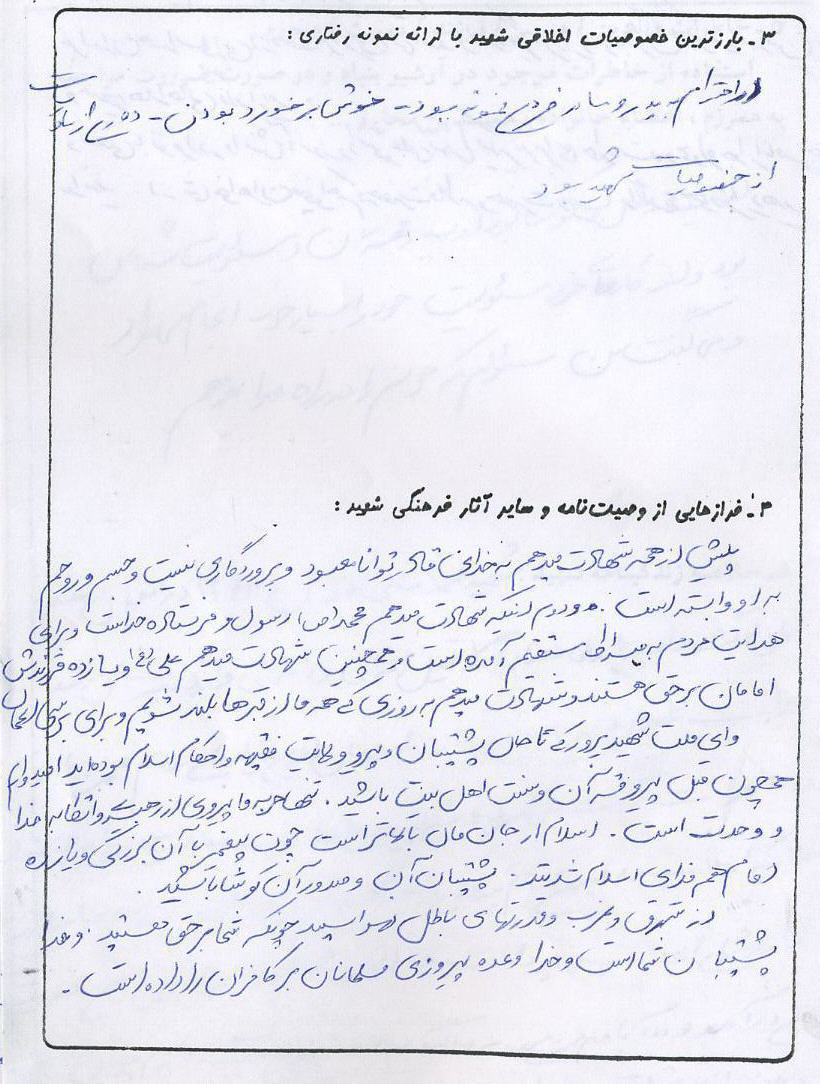 ۳ـ بارزترین خصوصیات اخلاقی شهید با ارائه نمونه رفتاری :
در احترام به پدر و مادر خود نمونه بود - خوش برخورد بودن - دفاع از
از خصوصیات شهید بود
۴ـ فرازهایی از وصیت‌نامه و سایر آثار فرهنگی شهید :
پیش از همه شهادت میدهم به خدای قادر توانا معبود و پروردگاری نیست و جسم و روحم
به او وابسته است . و دوم اینکه شهادت میدهم محمد (ص) رسول و فرستاده خداست و برای
هدایت مردم به صراط مستقیم آمده است و همچنین شهادت میدهم علی (ع) و یازده فرزندش
امامان برحق هستند و شهادت میدهم به روزی که همه ما از قبرها بلند شویم و برای بررسی اعمال
و ای ملت شهید پرور که تا حال پشتیبان و پیرو ولایت فقیه و احکام اسلام بوده‌اید امیدوارم
همچون قبل پیرو قرآن و سنت اهل بیت باشید . تنها حربه ما پیروی از رهبر و اتکا به خدا
و وحدت است . اسلام از جان مال بالاتر است چون پیغمبر با آن بزرگی و یازده
امام هم فدای اسلام شدند . پشتیبان آن و صدور آن کوشا باشید .
از شرق و غرب و قدرتهای باطل نهراسید چونکه شما برحق هستید . و خدا
پشتیبان شماست و خدا وعده پیروزی مسلمانان بر کافران را داده است .